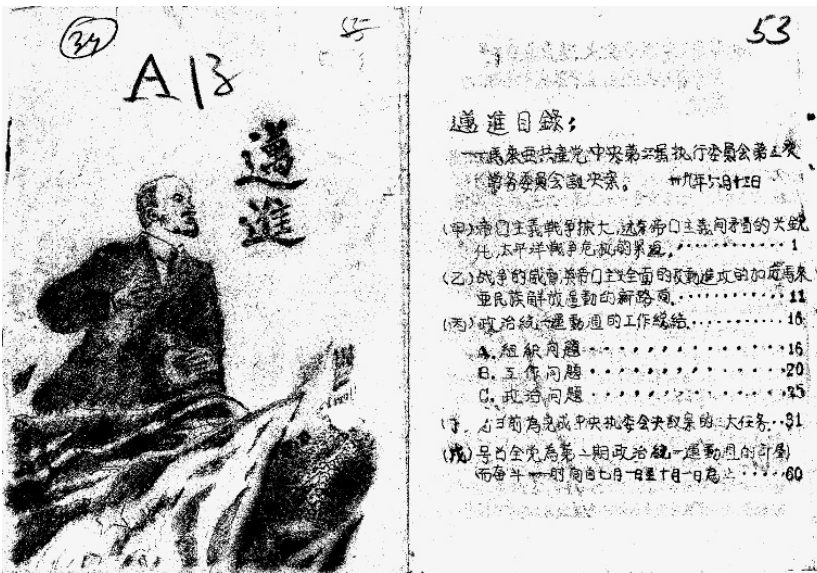 34
A13
邁進
53
邁進目錄:
——馬來亞共產党中央第二届执行委員会第三次
常务委員会議决案。
(甲)帝国主義戰爭擴大,帝国主義间矛盾的尖鋭
化,太平洋戰争危机的 1
(乙)战争的威脅,英帝国主義全面的反動進攻的加 馬來
亞民族解放運動的新路 11
(丙)政治統一運動週的工作總結 16
A. 組織问題 16
B. 工作问題 20
C. 政治问題 25
目前為完成中央执委会决議案的三大任务 31
(戊)号召全党為第二期政治統一運動週的計劃
而奋斗——时间自七月一日至十月一日為止 60